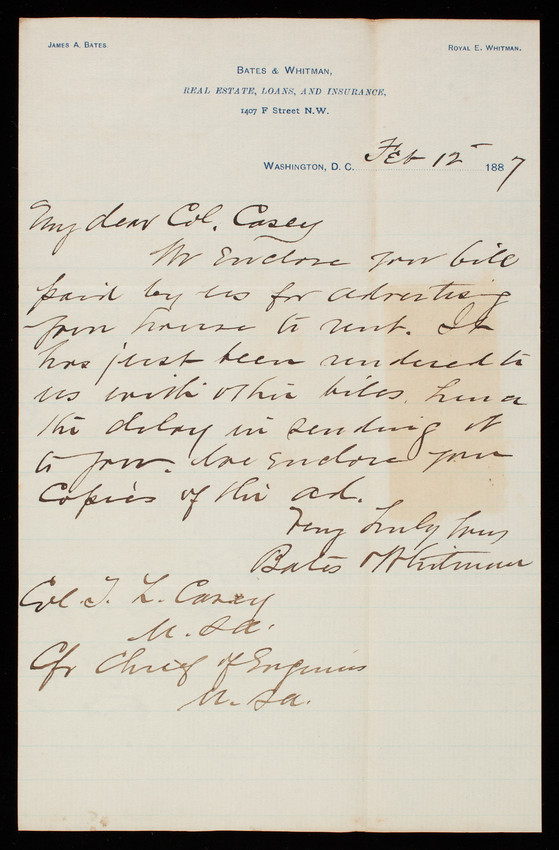 James A. Bates.
Royal E. Whitman.
Bates & Whitman,
Real Estate, Loans, and Insurance,
1407 F Street N.W.
Washington, D. C. Feb 12 1887
My dear Col. Casey
We Enclose your bill
paid by us for advertising
your house to rent. It
has just been rendered to
us with other bills, hence
the delay in sending it
to you. We Enclose you
Copies of the ad.
Very truly yours
Bates & Whitman
Col T. L. Casey
U.S.A.
Ofc Chief of Engineers
U.S.A.